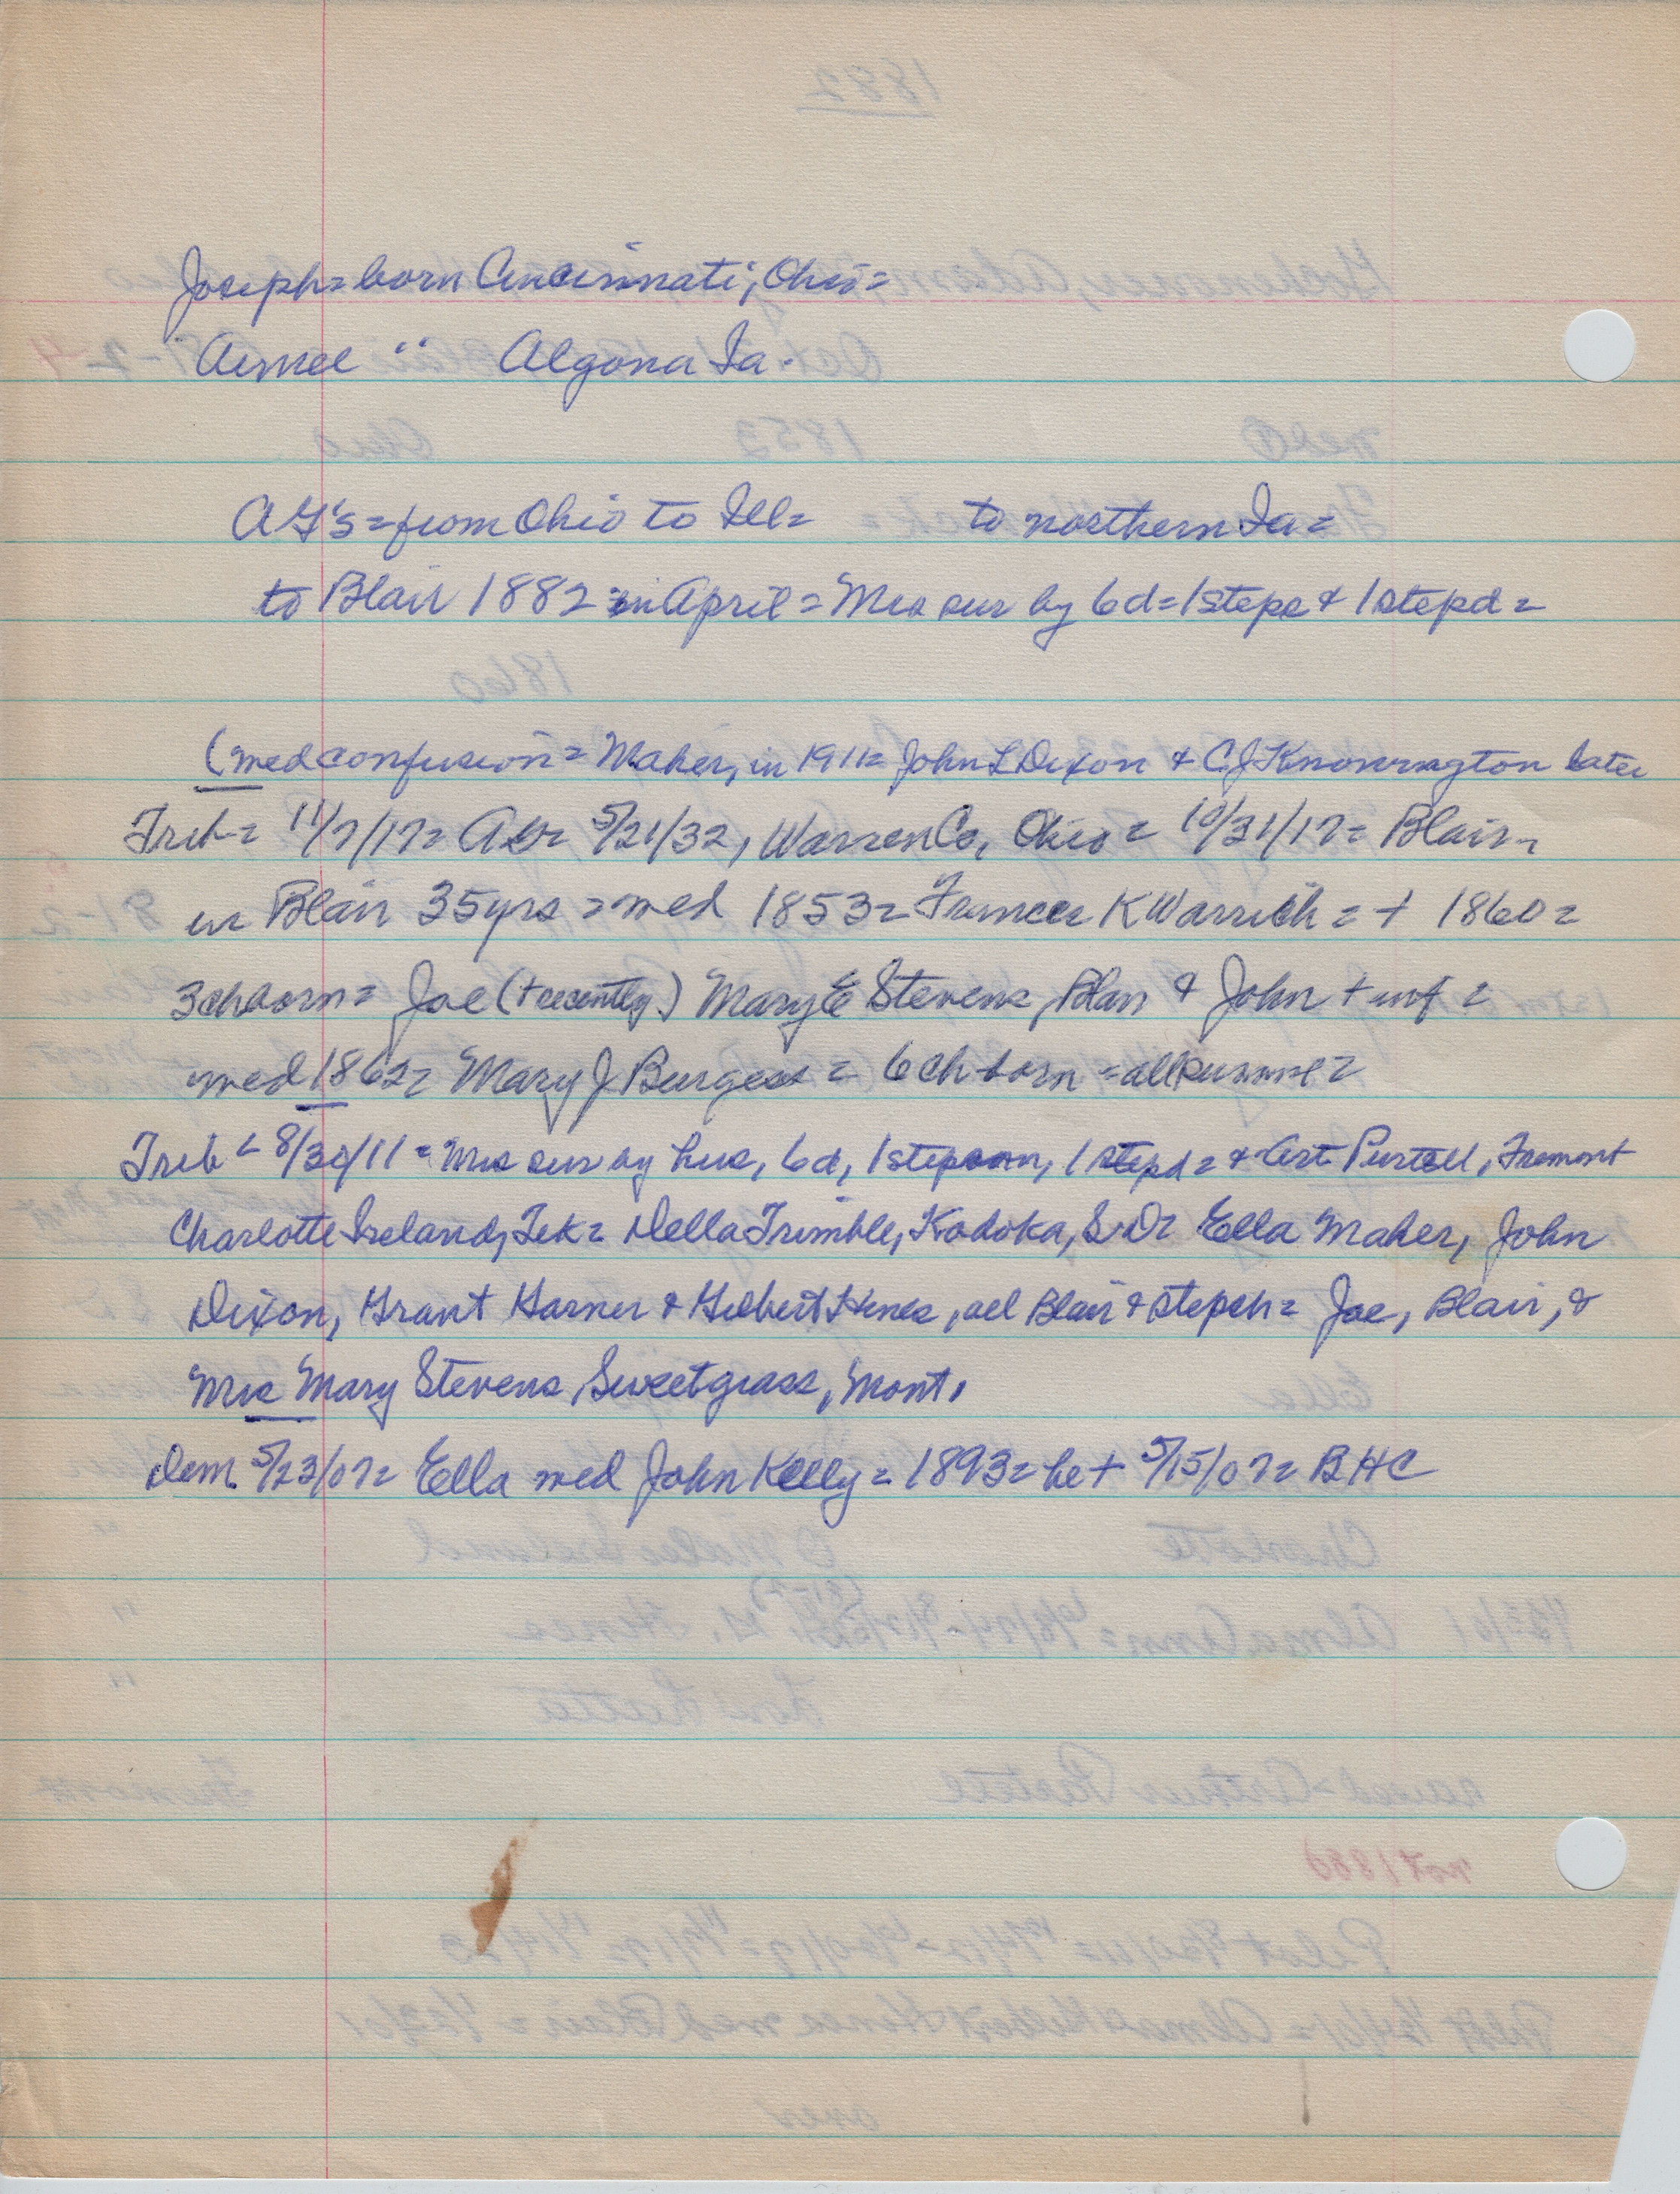 Joseph = born Cincinnati, Ohio =
" Algona Ia.
AG's = from Ohio to Ill = to northern Ia =
to Blair 1882 in April = Mrs sur by 6d = 1steps & 1stepd =
(med confusion = Maher, in 1911 = John L Dixon & C.J. later
Trib = 11/7/17 = 5/21/32, Warren Co, Ohio = 10/31/17 = Blair =
in Blair 35yrs = med 1853 = Frances K Warrick = + 1860 =
3ch born = Joe (+ recently) Mary E Stevens, Blair & John + inf =
med 1862 = Mary J Burgess = 6ch born = all =
Trib = 8/30/11 = Mrs sur by hus, 6d, 1stepson, 1stepd = & Art Purtell, Fremont
Charlotte Ireland, Tek = Della Trimble, Kadoka, S.D = Ella Maher, John
Dixon, Grant Harner & Gilbert Hines, all Blair & stepch = Joe, Blair, &
Mrs Mary Stevens, Sweetgrass, Mont.
Dem 5/23/07 = Ella med John Kelly = 1893 = he + 5/15/07 = BHC